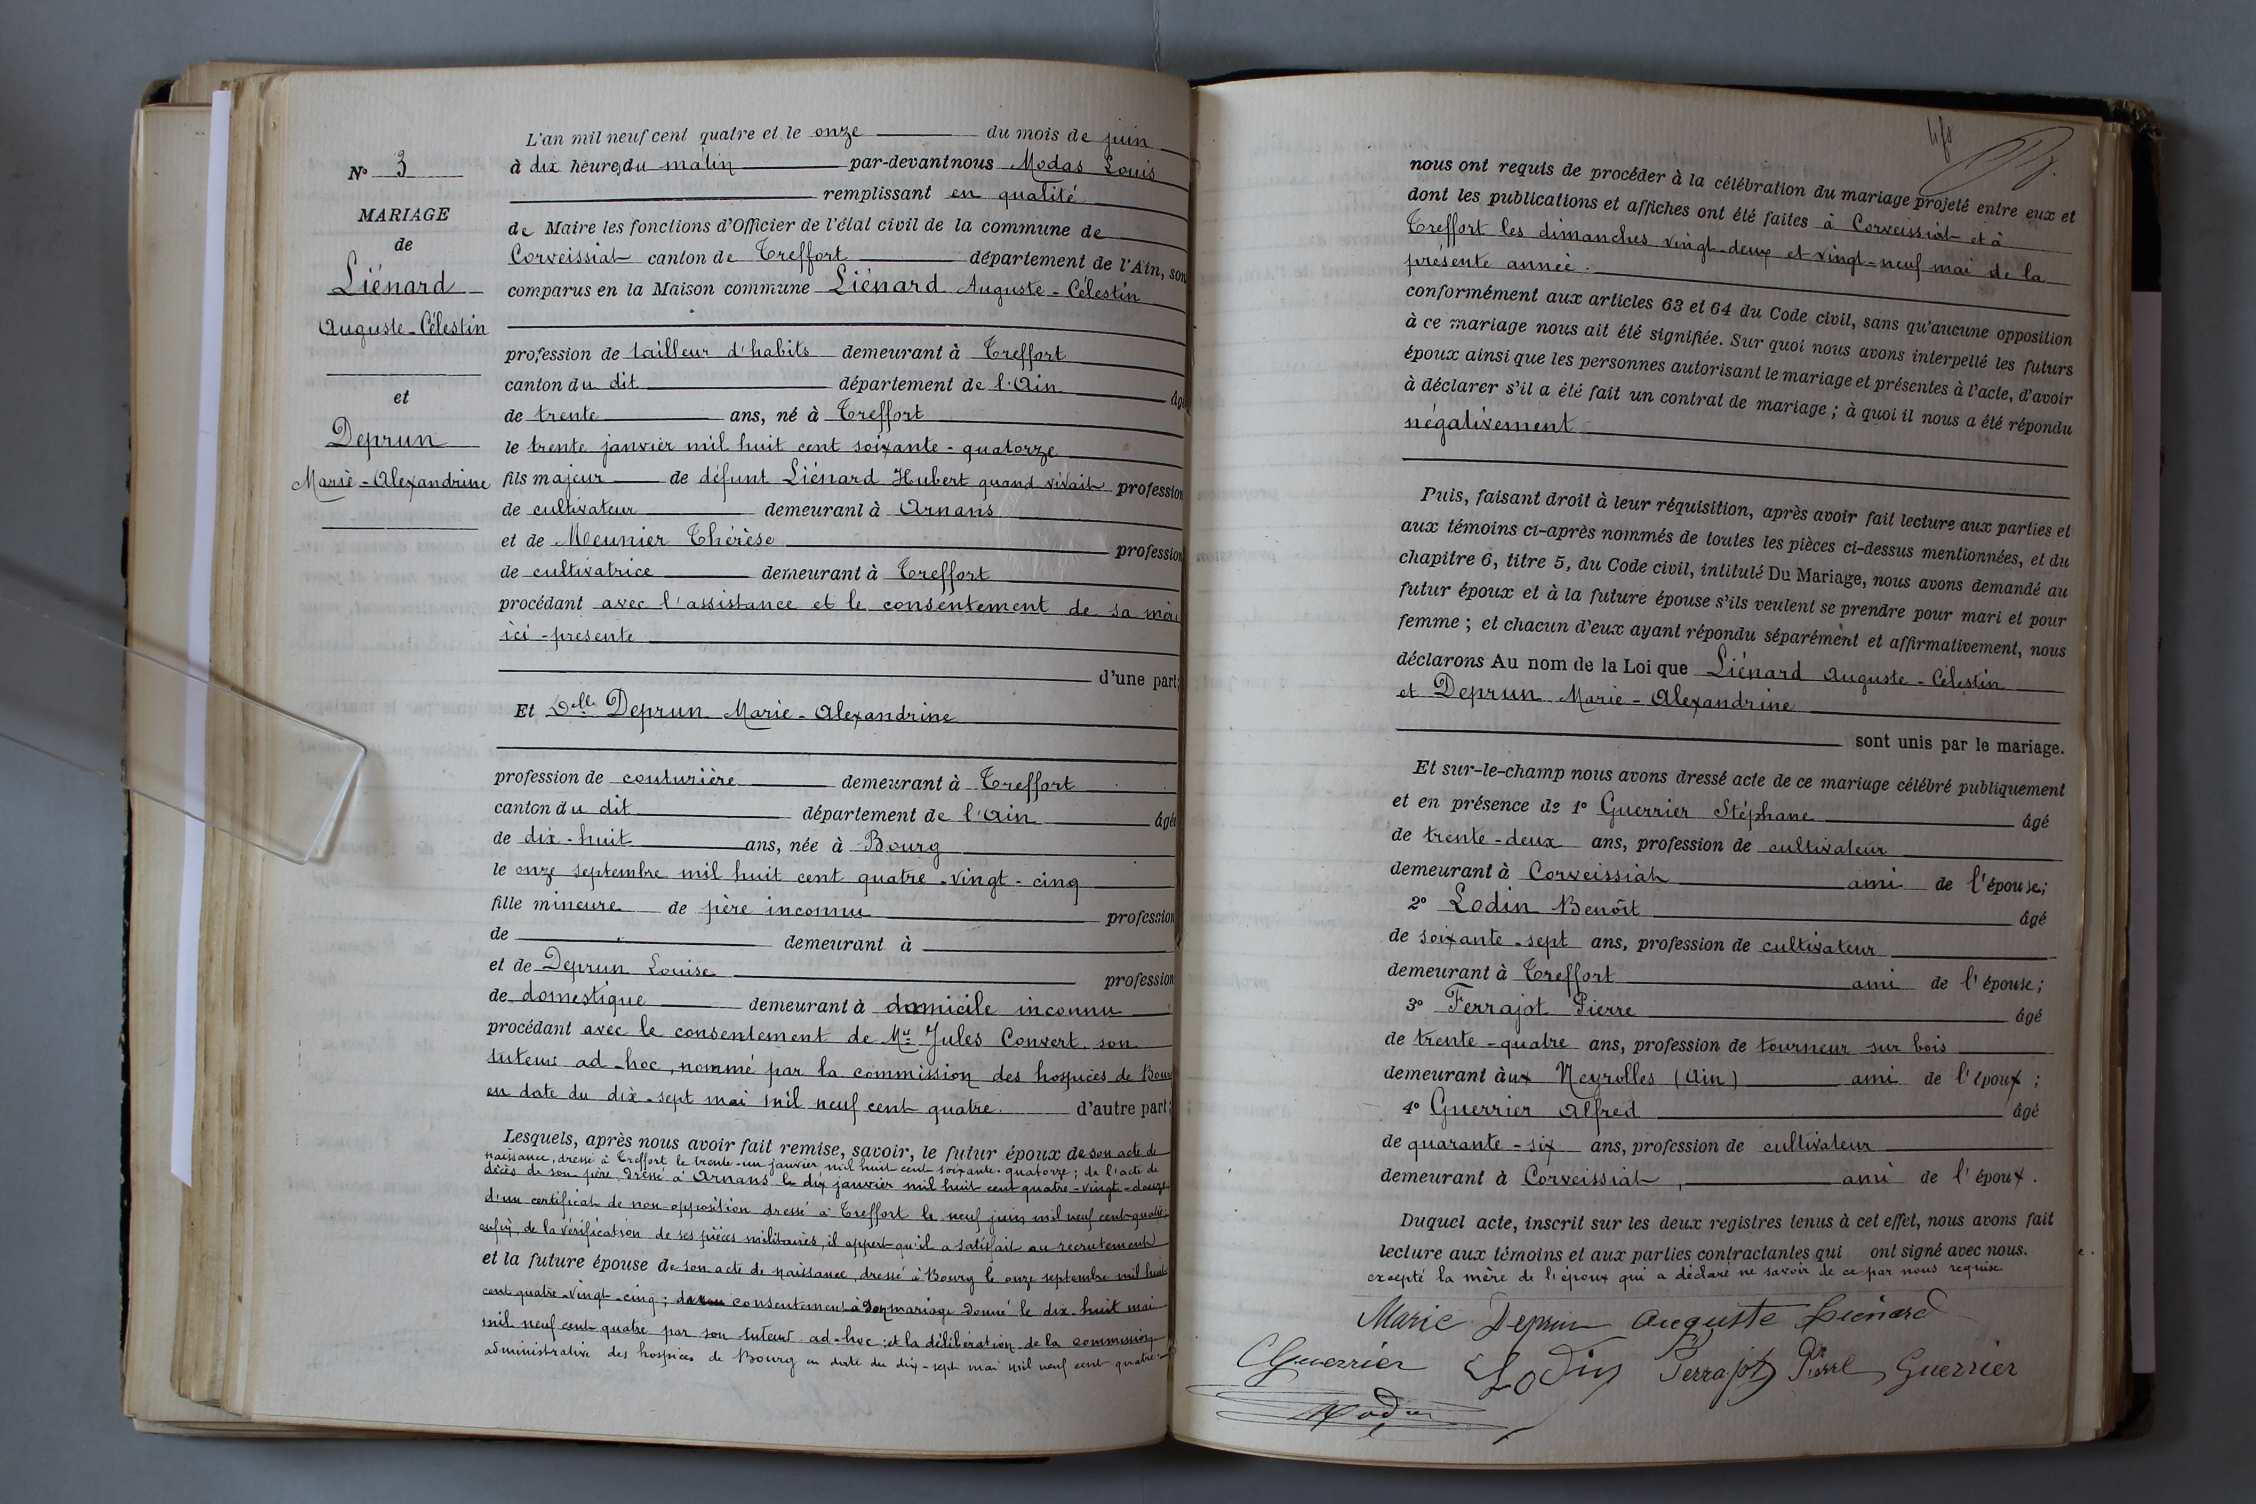 N° 3
MARIAGE
de
Liénard
Auguste-Célestin
et
Deprun
Marie-Alexandrine
L'an mil neuf cent quatre et le onze du mois de juin
à dix heures du matin par-devant nous Modas Louis
remplissant en qualité
de Maire les fonctions d'Officier de l'état civil de la commune de
Corveissiat canton de Treffort département de l'Ain, son
comparus en la Maison commune Liénard Auguste-Célestin
profession de tailleur d'habits demeurant à Treffort
canton du dit département de l'Ain âgé
de trente ans, né à Treffort
le trente janvier mil huit cent soixante-quatorze
fils majeur de défunt Liénard Hubert quand vivait profession
de cultivateur demeurant à Arnans
et de Meunier Thérèse profession
de cultivatrice demeurant à Treffort
procédant avec l'assistance et le consentement de sa mère
ici-présente
d'une part;
Et Delle Deprun Marie-Alexandrine
profession de couturière demeurant à Treffort
canton du dit département de l'Ain âgée
de dix-huit ans, née à Bourg
le onze septembre mil huit cent quatre-vingt-cinq
fille mineure de père inconnu profession
de demeurant à
et de Deprun Louise profession
de domestique demeurant à domicile inconnu
procédant avec le consentement de Mr Jules Convert, son
tuteur ad-hoc, nommé par la commission des hospices de Bourg
en date du dix-sept mai mil neuf cent quatre. d'autre part;
Lesquels, après nous avoir fait remise, savoir, le futur époux de son acte de
naissance, dressé à Treffort le trente-un janvier mil huit cent soixante-quatorze; de l'acte de
décès de son père, dressé à Arnans le dix janvier mil huit cent quatre-vingt-douze
d'un certificat de non-opposition dressé à Treffort le neuf juin mil neuf cent quatre,
enfin, de la vérification de ses pièces militaires, il appert qu'il a satisfait au recrutement
et la future épouse de son acte de naissance, dressé à Bourg le onze septembre mil huit
cent quatre-vingt-cinq; consentement à son mariage donné le dix-huit mai
mil neuf cent quatre par son tuteur ad-hoc; et la délibération de la commission
administrative des hospices de Bourg en date du dix-sept mai mil neuf cent quatre
nous ont requis de procéder à la célébration du mariage projeté entre eux et
dont les publications et affiches ont été faites à Corveissiat et à
Treffort les dimanches vingt-deux et vingt-neuf mai de la
présente année.
conformément aux articles 63 et 64 du Code civil, sans qu'aucune opposition
à ce mariage nous ait été signifiée. Sur quoi nous avons interpellé les futurs
époux ainsi que les personnes autorisant le mariage et présentes à l'acte, d'avoir
à déclarer s'il a été fait un contrat de mariage; à quoi il nous a été répondu
négativement
Puis, faisant droit à leur réquisition, après avoir fait lecture aux parties et
aux témoins ci-après nommés de toutes les pièces ci-dessus mentionnées, et du
chapitre 6, titre 5, du Code civil, intitulé Du Mariage, nous avons demandé au
futur époux et à la future épouse s'ils veulent se prendre pour mari et pour
femme; et chacun d'eux ayant répondu séparément et affirmativement, nous
déclarons Au nom de la Loi que Liénard Auguste-Célestin
et Deprun Marie-Alexandrine
sont unis par le mariage.
Et sur-le-champ nous avons dressé acte de ce mariage célébré publiquement
et en présence de 1° Guerrier Stéphane âgé
de trente-deux ans, profession de cultivateur
demeurant à Corveissiat ami de l'épouse;
2° Lodin Benoît âgé
de soixante-sept ans, profession de cultivateur
demeurant à Treffort ami de l'épouse;
3° Ferrajot Pierre âgé
de trente-quatre ans, profession de tourneur sur bois
demeurant aux Neyrolles (Ain) ami de l'époux;
4° Guerrier Alfred âgé
de quarante-six ans, profession de cultivateur
demeurant à Corveissiat, ami de l'époux.
Duquel acte, inscrit sur les deux registres tenus à cet effet, nous avons fait
lecture aux témoins et aux parties contractantes qui ont signé avec nous.
excepté la mère de l'époux qui a déclaré ne savoir de ce par nous requise
Marie Deprun Auguste Lienard
Guerrier Lodin Ferrajot Pierre Guerrier
Modas